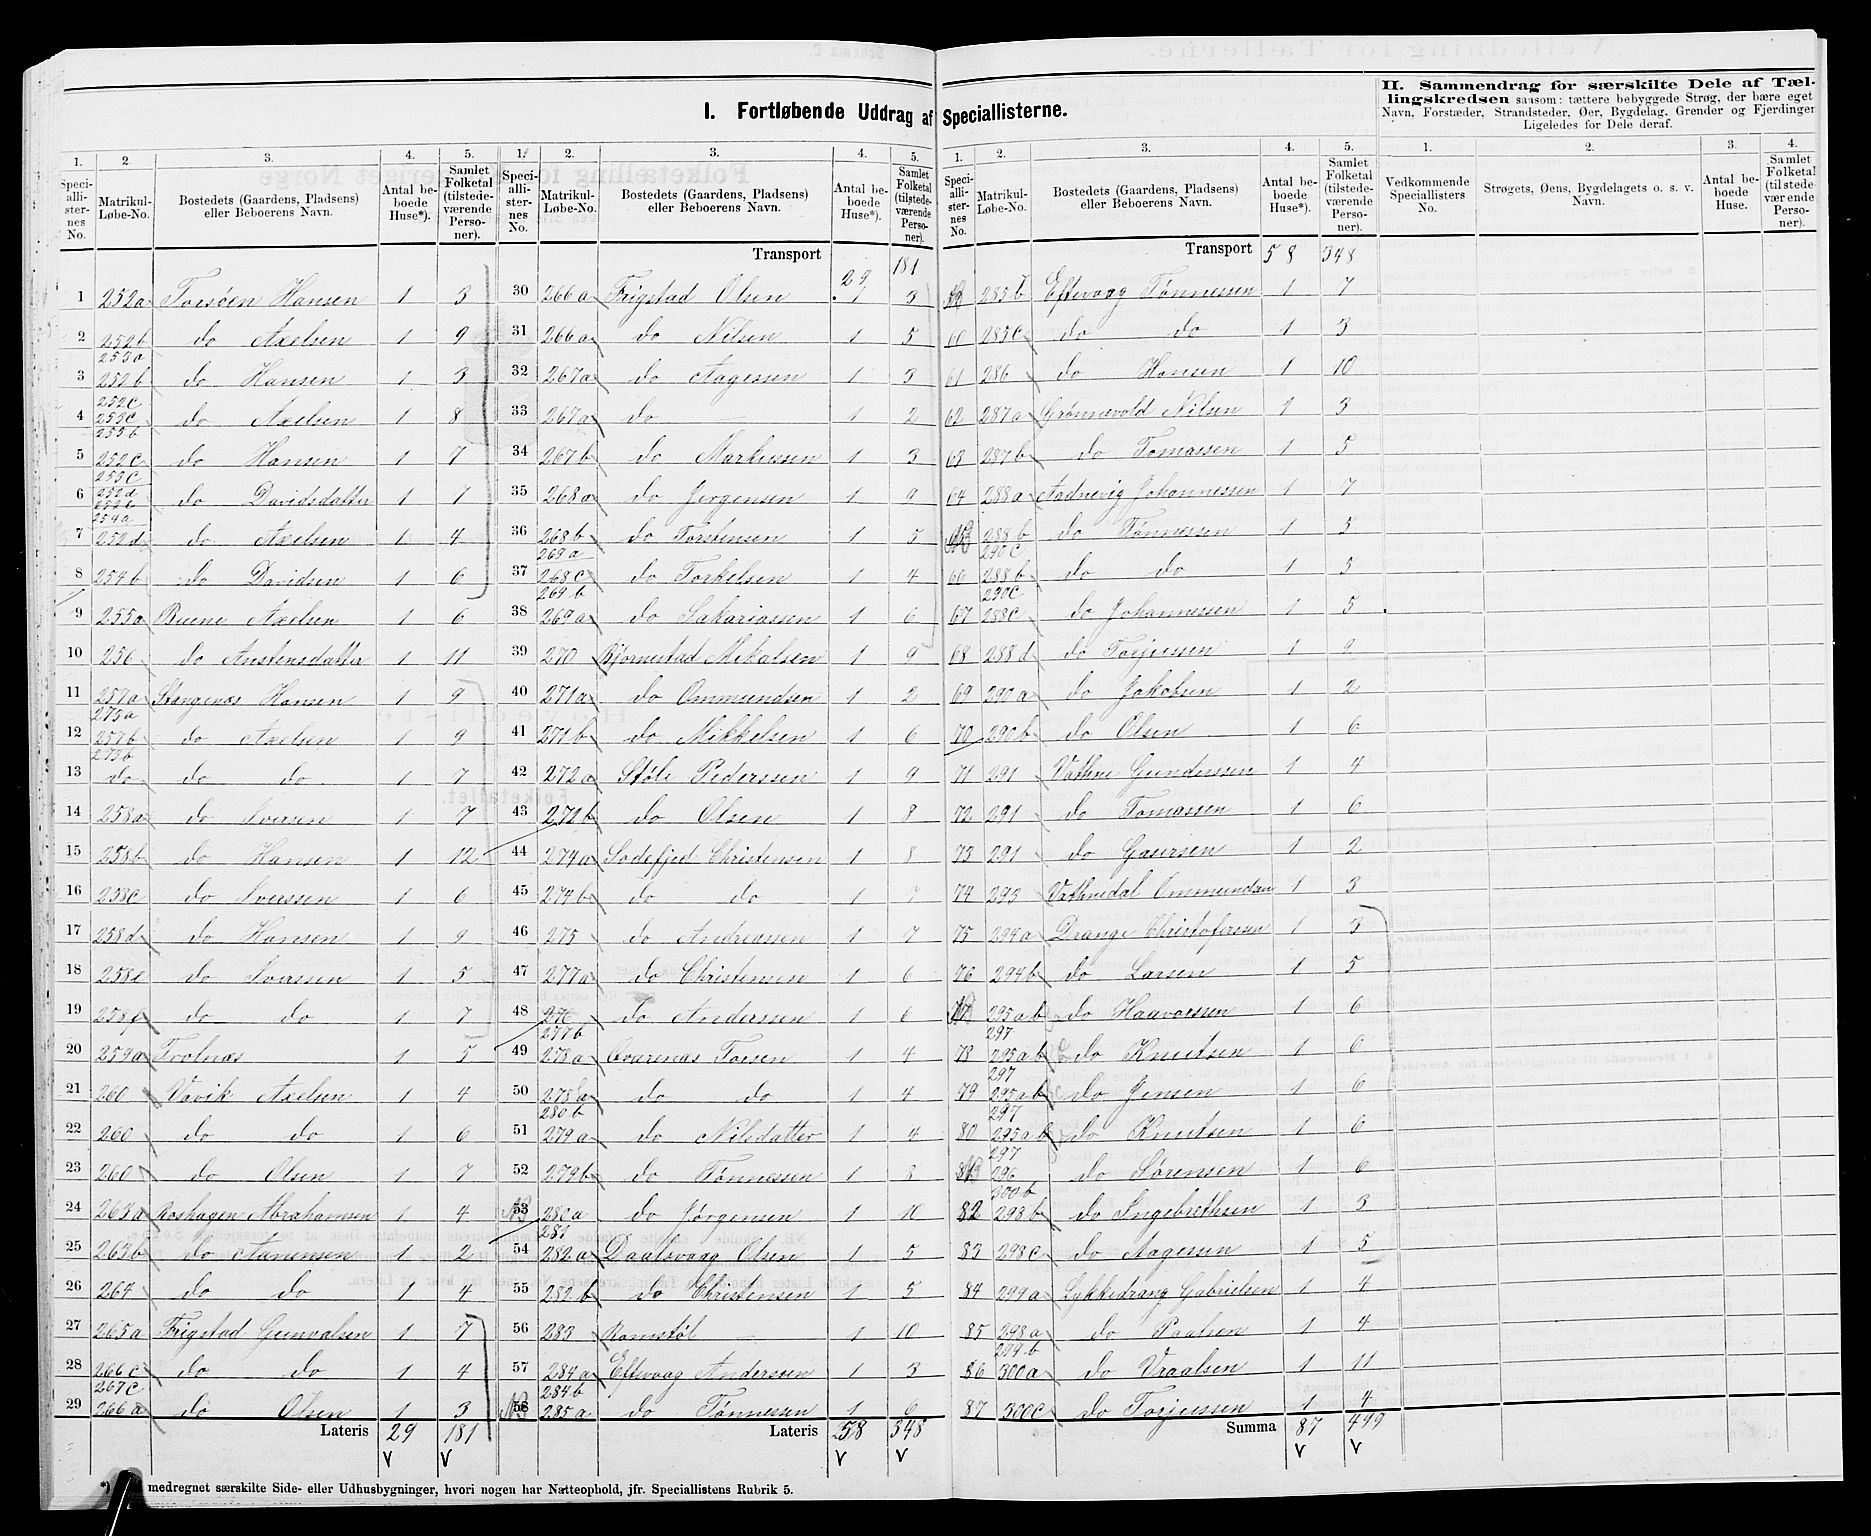 I. Fortløbende Uddrag af Speciallisterne.
II. Sammendrag for særskilte Dele af Tællingskredsen saasom: tættere bebyggede Strøg, der bære eget
Navn, Forstæder, Strandsteder, Øer, Bygdelag, Grender og Fjerdinger
Ligeledes for Dele deraf.
1. 2. 3. 4. 5.
Speciallisternes No. Matrikul-Løbe-No. Bostedets (Gaardens, Pladsens) eller Beboerens Navn. Antal beboede Huse*). Samlet Folketal (tilstedeværende Personer).
1 252a Torsöen Hansen 1 3
2 252b do Axelsen 1 9
253a
3 252b do Hansen 1 3
252c
4 253c do Axelsen 1 8
255b
5 252c do Hansen 1 7
255c
6 252d do Davidsdatter 1 7
254a
7 252d do Axelsen 1 4
8 254b do Davidsen 1 6
9 255a Buene Axelsen 1 6
10 256 do Anstensdatter 1 11
11 257a Stangenæs Hansen 1 9
273a
12 257b do Axelsen 1 9
273b
13 do do do 1 7
14 258a do Iversen 1 7
15 258b do Hansen 1 12
16 258c do Iverssen 1 6
17 258d do Hansen 1 9
18 258e do Iverssen 1 5
19 258f do do 1 7
20 259a Tvolnæs 1 5
21 260 Vavik Axelsen 1 4
22 260 do do 1 6
23 260 do Olsen 1 7
24 263a Roshagen Abrahamsen 1 4
25 263b do Aanensen 1 2
26 264 do do 1 4
27 265a Frigstad Gunvalsen 1 7
28 266c do do 1 4
267c
29 266a do Olsen 1 3
Lateris 29 181
1. 2. 3. 4. 5.
Speciallisternes No. Matrikul-Løbe-No. Bostedets (Gaardens, Pladsens) eller Beboerens Navn. Antal beboede Huse*). Samlet Folketal (tilstedeværende Personer).
Transport 29 181
30 266a Frigstad Olsen 1 3
31 266a do Nilsen 1 5
32 267a do Aagessen 1 3
33 267a do 1 2
34 267b do Markussen 1 3
35 268a do Jørgensen 1 9
36 268b do Torstensen 1 5
269a
37 268c do Torkelsen 1 4
269b
38 269a do Sakariassen 1 6
39 270 Bjørnestad Mikalsen 1 9
40 271a do Ommundsen 1 2
41 271b do Mikkelsen 1 6
42 272a Støle Pederssen 1 9
43 272b do Olsen 1 8
44 274a Sodefjed Christensen 1 8
45 274b do do 1 7
46 275 do Andreassen 1 7
47 277a do Christensen 1 6
48 276 do Anderssen 1 6
277b
49 278a Ovarenæs Torsen 1 4
50 278a do do 1 4
280b
51 279a do Nilsdatter 1 4
52 279b do Tønnessen 1 3
53 280a do Jørgensen 1 10
281
54 282a Daatsvaag Olsen 1 5
55 282b do Christensen 1 5
56 283 Ramstøl 1 10
57 284a Eftevaag Anderssen 1 3
284b
58 285a do Tønnessen 1 6
Lateris 58 348
1. 2. 3. 4. 5.
Speciallisternes No. Matrikul-Løbe-No. Bostedets (Gaardens, Pladsens) eller Beboerens Navn. Antal beboede Huse*). Samlet Folketal (tilstedeværende Personer).
Transport 58 348
285b Eftevaag Tønnessen 1 7
60 285c do do 1 3
61 286 do Hansen 1 10
62 287a Grønnevold Nilsen 1 3
63 287b do Tomassen 1 5
64 288a Aadnevig Johannessen 1 7
288b do Tønnessen 1 5
290c
66 288b do do 1 5
290c
67 288c do Johannessen 1 5
68 288d do Torjussen 1 9
69 290a do Jakobsen 1 2
70 290b do Olsen 1 6
71 291 Vathne Gunderssen 1 4
72 291 do Tomassen 1 6
73 291 do Gaursen 1 2
74 293 Vathnedal Ommundsen 1 3
75 294a Drange Christoferssen 1 3
76 294b do Larsen 1 5
77 295ab do Haavorssen 1 6
297
78 295ab do Knutsen 1 6
297
79 295ab do Jensen 1 6
297
80 295ab do Knutsen 1 6
297
81 296 do Sørensen 1 6
300b
82 298b do Ingebrethsen 1 3
83 298c do Aagesen 1 5
84 299a Lykkedrang Gabrielsen 1 4
85 298a do Paalsen 1 4
299b
86 300a do Vraalsen 1 11
87 300c do Torjussen 1 4
Summa 87 499
1. 2. 3. 4.
Vedkommende Speciallisters No. Strøgets, Øens, Bygdelagets o. s. v. Navn. Antal beboede Huse. Samlet Folketal (tilstedeværende Personer).
*) medregnet særskilte Side- eller Udhusbygninger, hvori nogen har Natteophold, jfr. Speciallistens Rubrik 5.